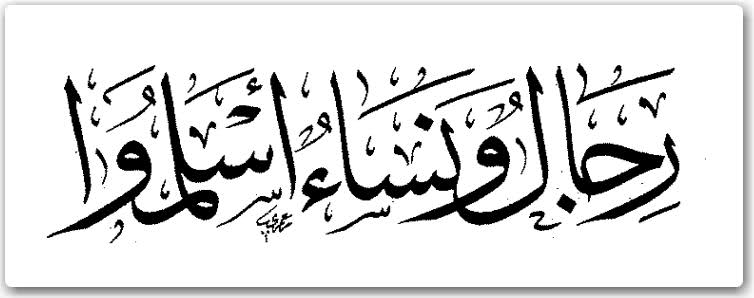 رجال ونساء أسلموا